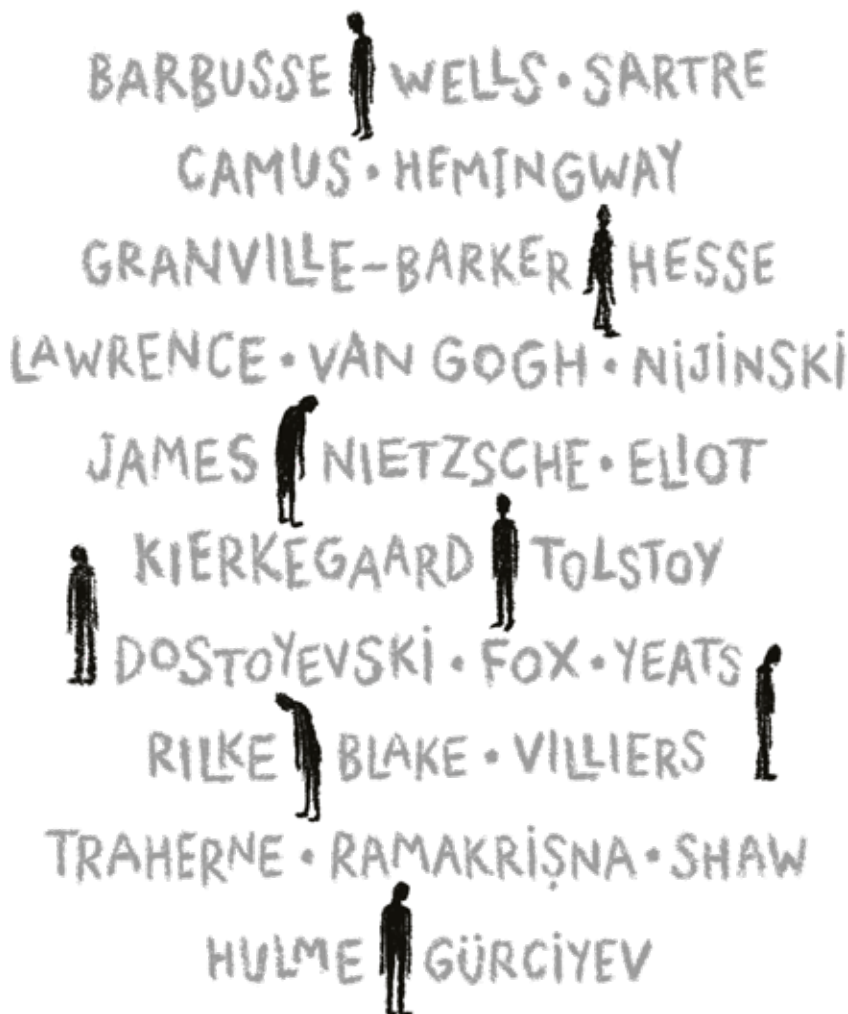 BARBUSSE WELLS • SARTRE
CAMUS • HEMINGWAY
GRANVILLE-BARKER HESSE
LAWRENCE • VAN GOGH • NİJİNSKİ
JAMES NIETZSCHE • ELIOT
KIERKEGAARD TOLSTOY
DOSTOYEVSKİ • FOX • YEATS
RILKE BLAKE • VILLIERS
TRAHERNE • RAMAKRİŞNA • SHAW
HULME GÜRCİYEV